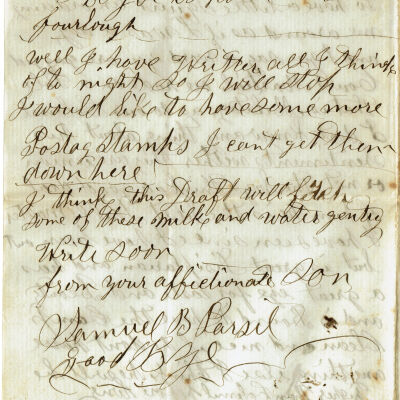 fourlough
well I have Written all I think
of to night So I will stop
I would like to have some more
Postag Stamps I cant get them
down here
I think this Draft will fetch
some of these milk and water gentry
Write soon
from your affictionate Son
Samuel B Parsil
Good B ye